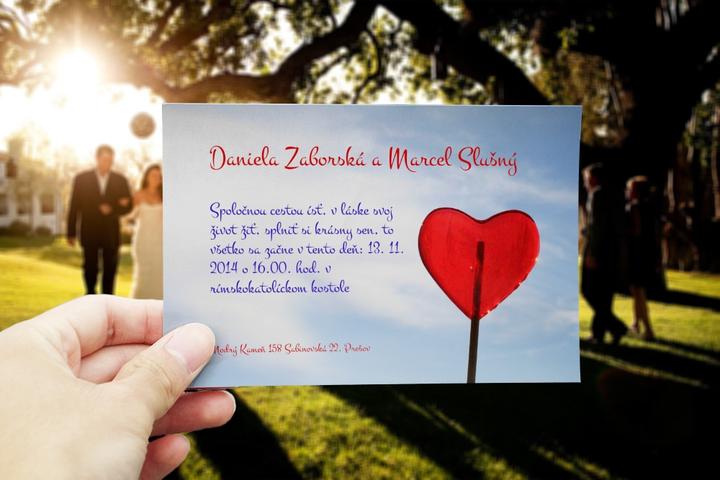 Daniela Zaborská a Marcel Slušný
Spoločnou cestou ísť. v láske svoj
život žiť. splniť si krásny sen. to
všetko sa začne v tento deň: 18. 11.
2014 o 16.00. hod. v
rímskokatolíckom kostole
Modrý Kameň 158 Sabinovská 22. Prešov